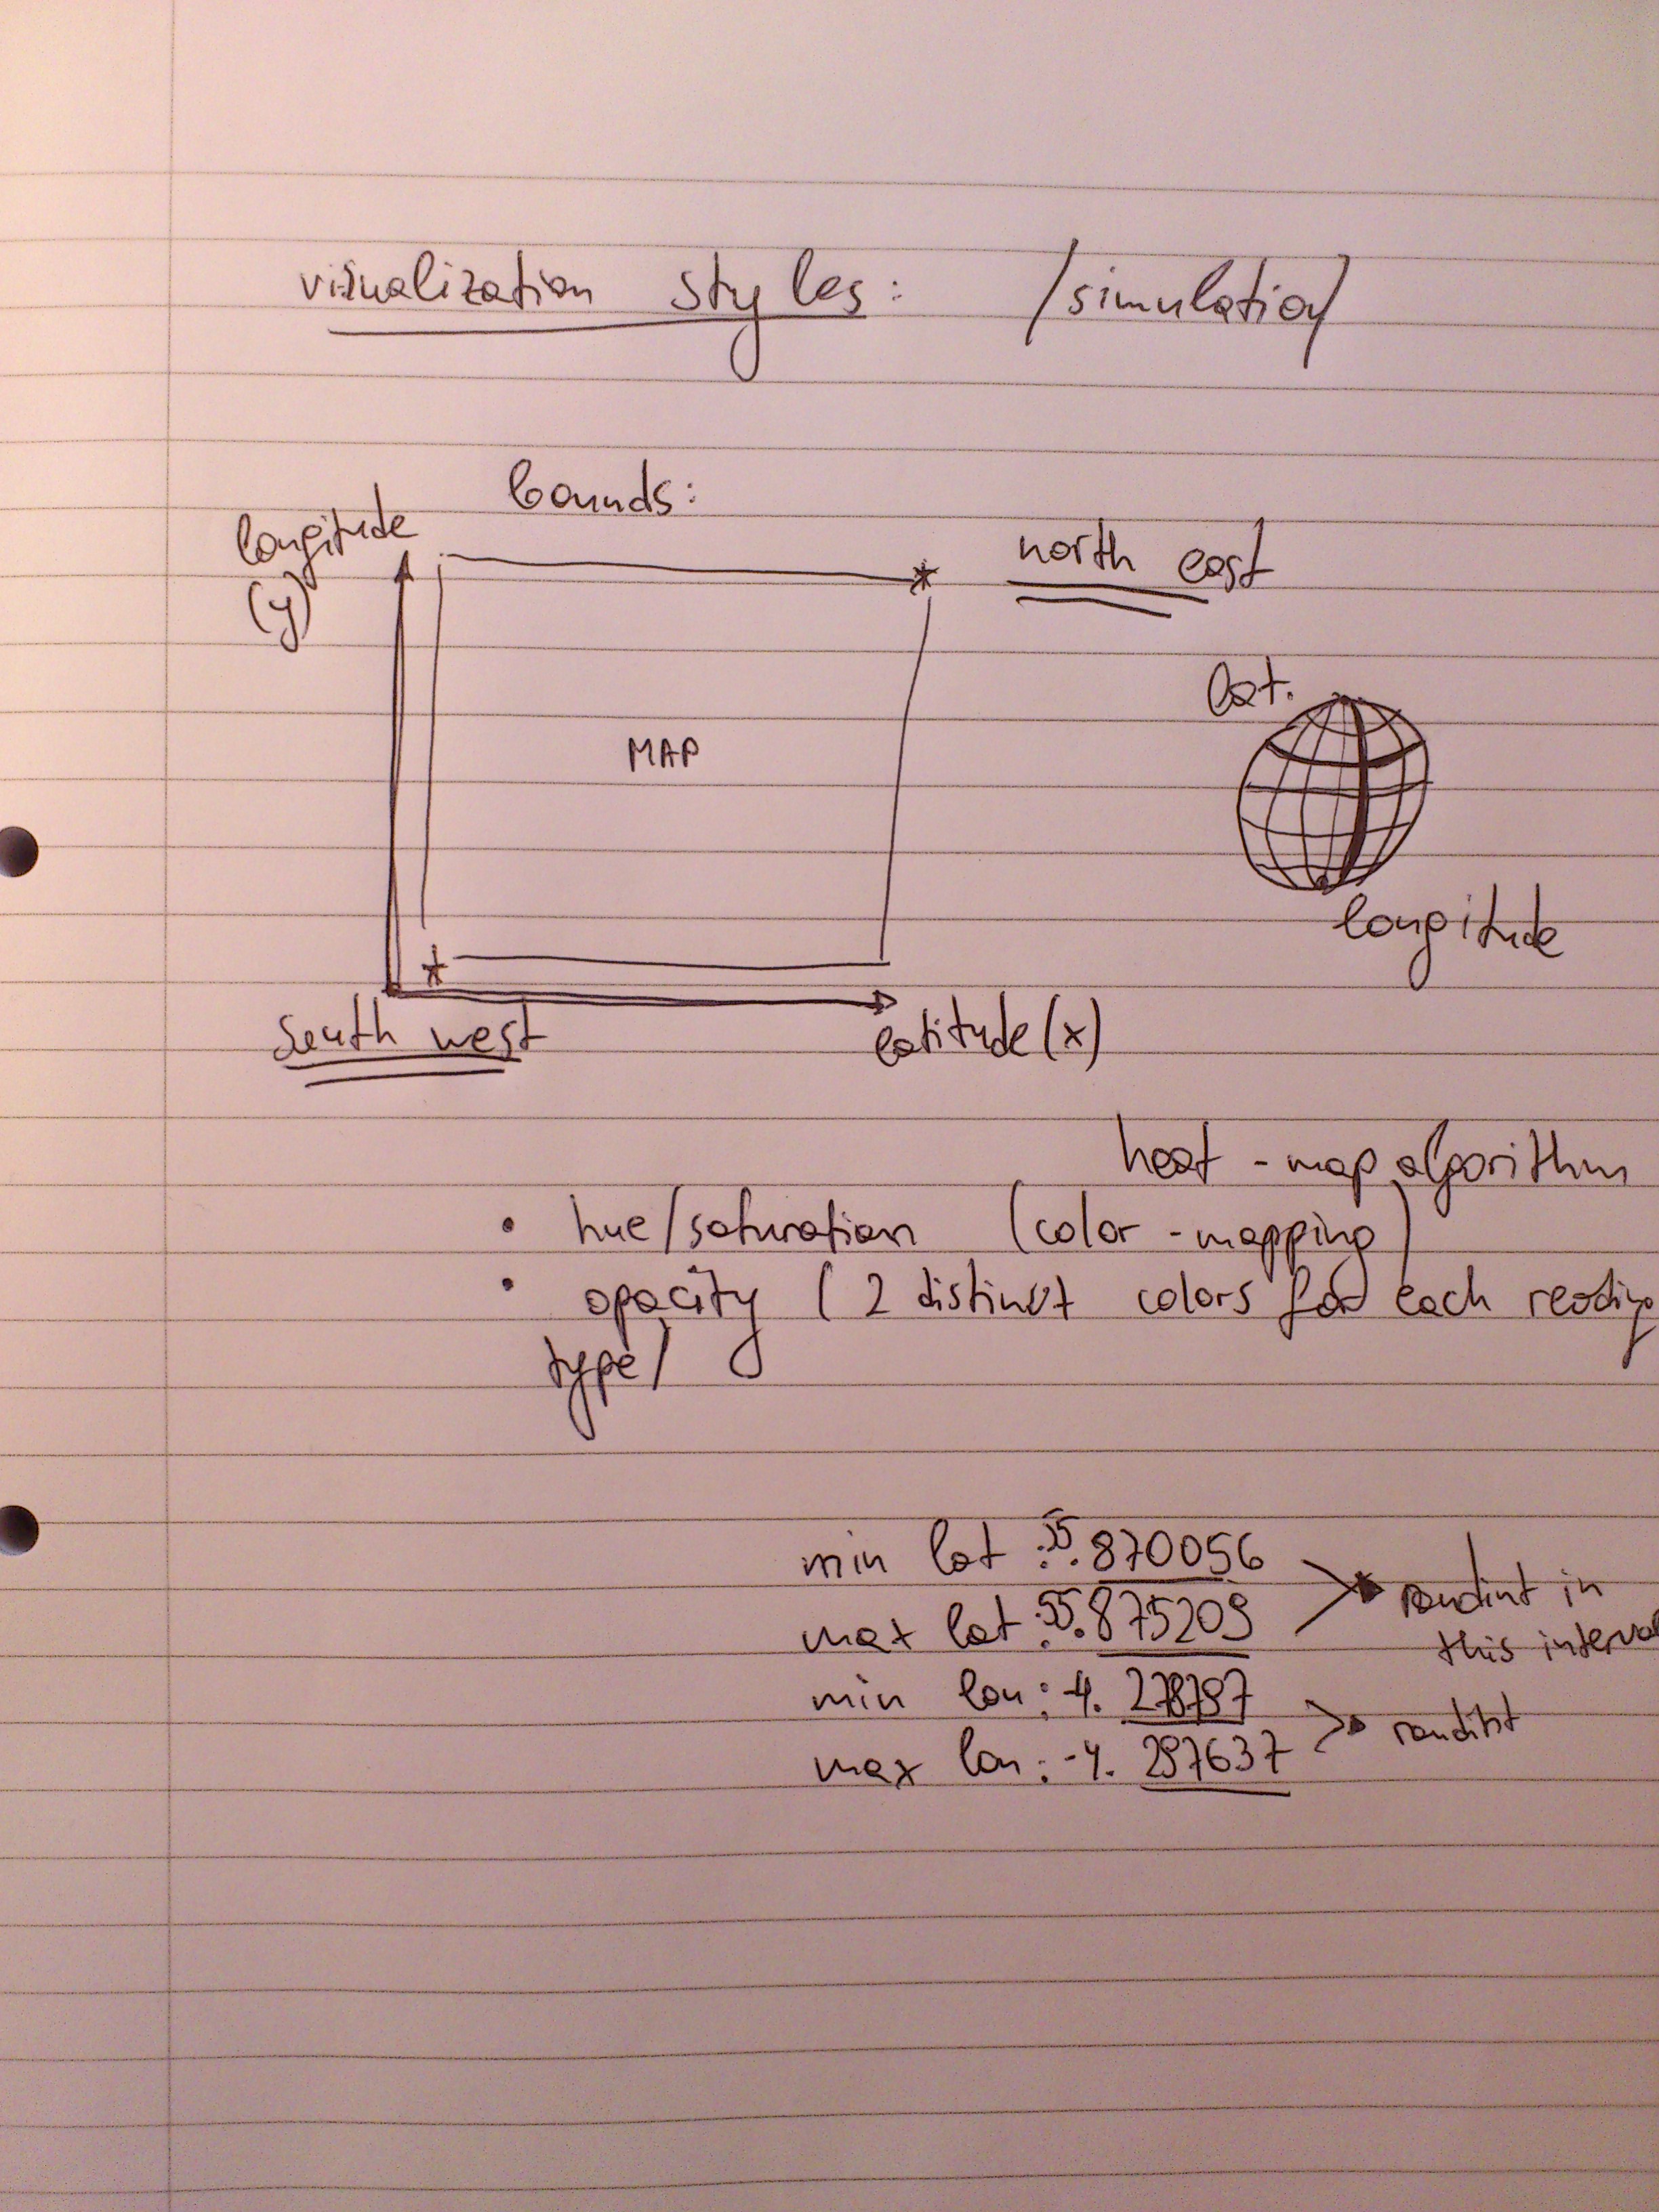 visualization styles: /simulation/
bounds:
longitude
(y)
north east
MAP
lat.
longitude
south west
latitude (x)
heat-map algorithm
• hue/saturation (color-mapping)
• opacity (2 distinct colors for each reading
type)
min lat: 55.870056
max lat: 55.875209
randint in
this interval
min lon: -4. 278787
max lon: -4. 297637
randint